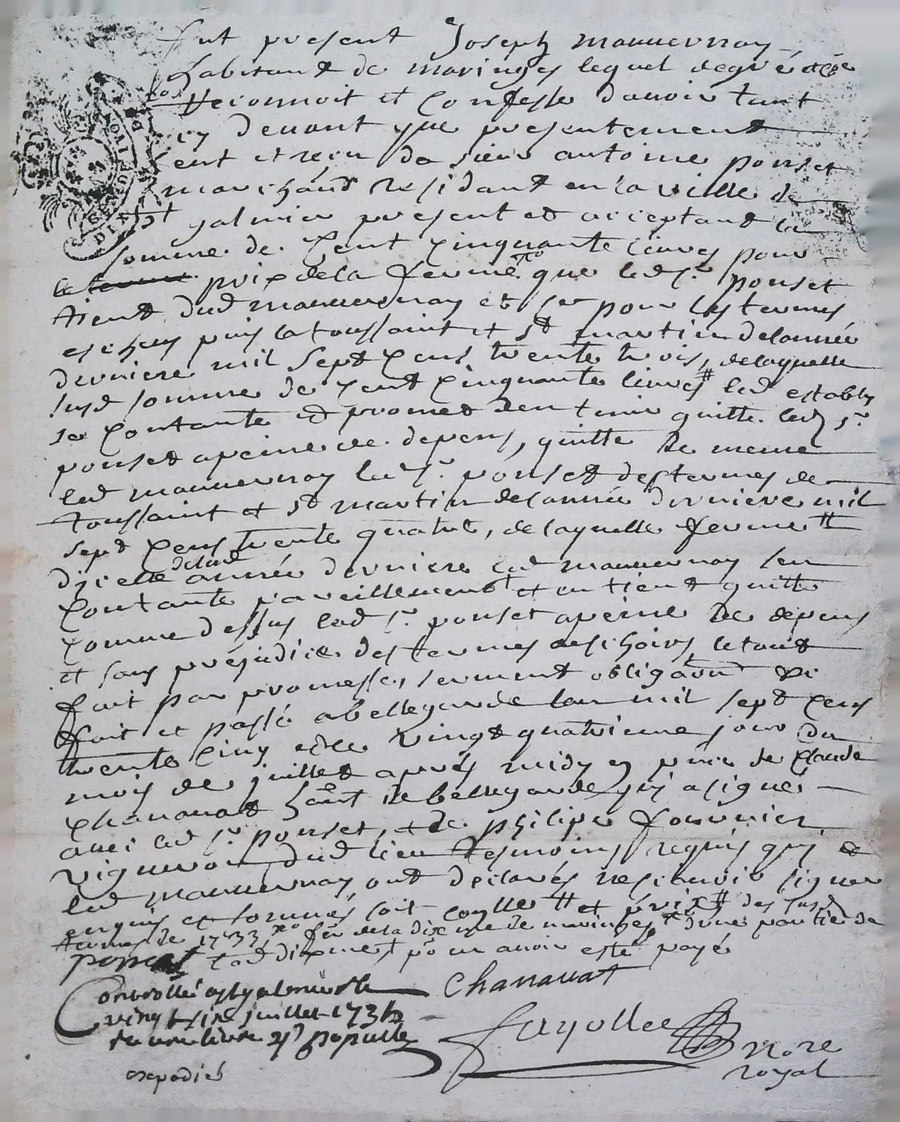 fut present Joseph mauvernay
habitant de maringes lequel de gré a
Reconnoit et Confesse d'avoir tant
cy devant que presentement
eut et reçu de sieur antoine ponset
marchand Residant en la ville de
st galmier present et acceptant la
somme de Cent Cinquante livres pour
prix de la ferme que led sr. ponset
tient dud mauvernay et ce pour les termes
escheus puis la toussaint et st martin de lannée
derniere mil sept Cens trente trois, de laquelle
susd somme de Cent Cinquante livres led estably
se Contante et promet d'en tenir quitte led sr.
ponset a peine de depens, quitte de meme
led mauvernay led sr. ponset des termes de
toussaint et st martin de lannée derniere mil
sept Cens trente quatre, de laquelle ferme
d'icelle année derniere led mauvernay sen
Contante pareillement et en tient quitte
Comme dessus led sr. ponset a peine de depens
et sans prejudice des termes a eschoirs, le tout
fait par promesse, serment obligaon
fait et passé a bellegarde lan mil sept Cens
trente Cinq et le vingt quatrieme jour du
mois de juillet apres midy en pnce de Claude
Chanavat hant de bellegarde qui a signé
avec led sr. ponset, et de philipe fournier
vigneron dud lieu tesmoins requis qui et
led mauvernay ont declarés ne scavoir signer
enquis et sommés soit et prix des susd
termes de 1733 de la dixme de maringes d'une partie de
lad dixme pour en avoir esté payé
ponset
Chanavat
Controllé a st galmier le
vingt six juillet 1735
fayolle
nore
royal
expedié